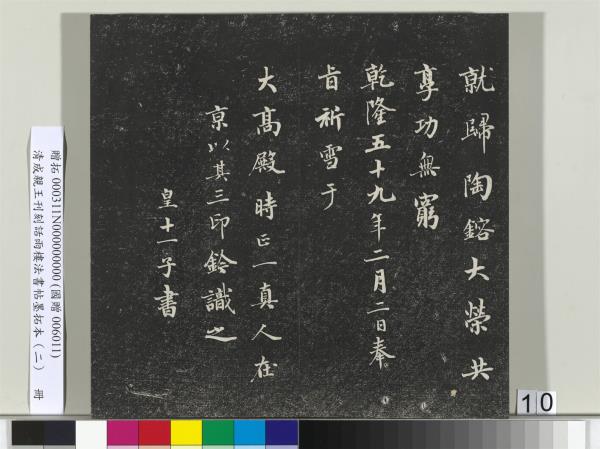 就歸陶鎔大榮共
享功無窮
乾隆五十九年二月二日奉
旨祈雪于
大髙殿時正一真人在
京以其三印鈐識之
皇十一子書
贈拓 000311N000000000 (國贈 006011)
清成親王刊刻話雨樓法書帖墨拓本（二） 冊
10